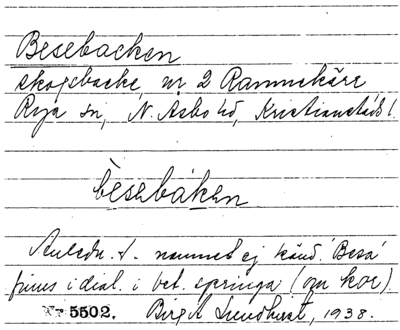 Besebacken
skogsbacke, nr 2 Rammekärr
Röja sn, N. Åsbo hd, Kristianstads l.
bèsebákən
Anledn. t. namnet ej känd. Besa
finns i dial. i bet. springa (om kor)
Nr 5502. Birgit Lundkvist, 1938.